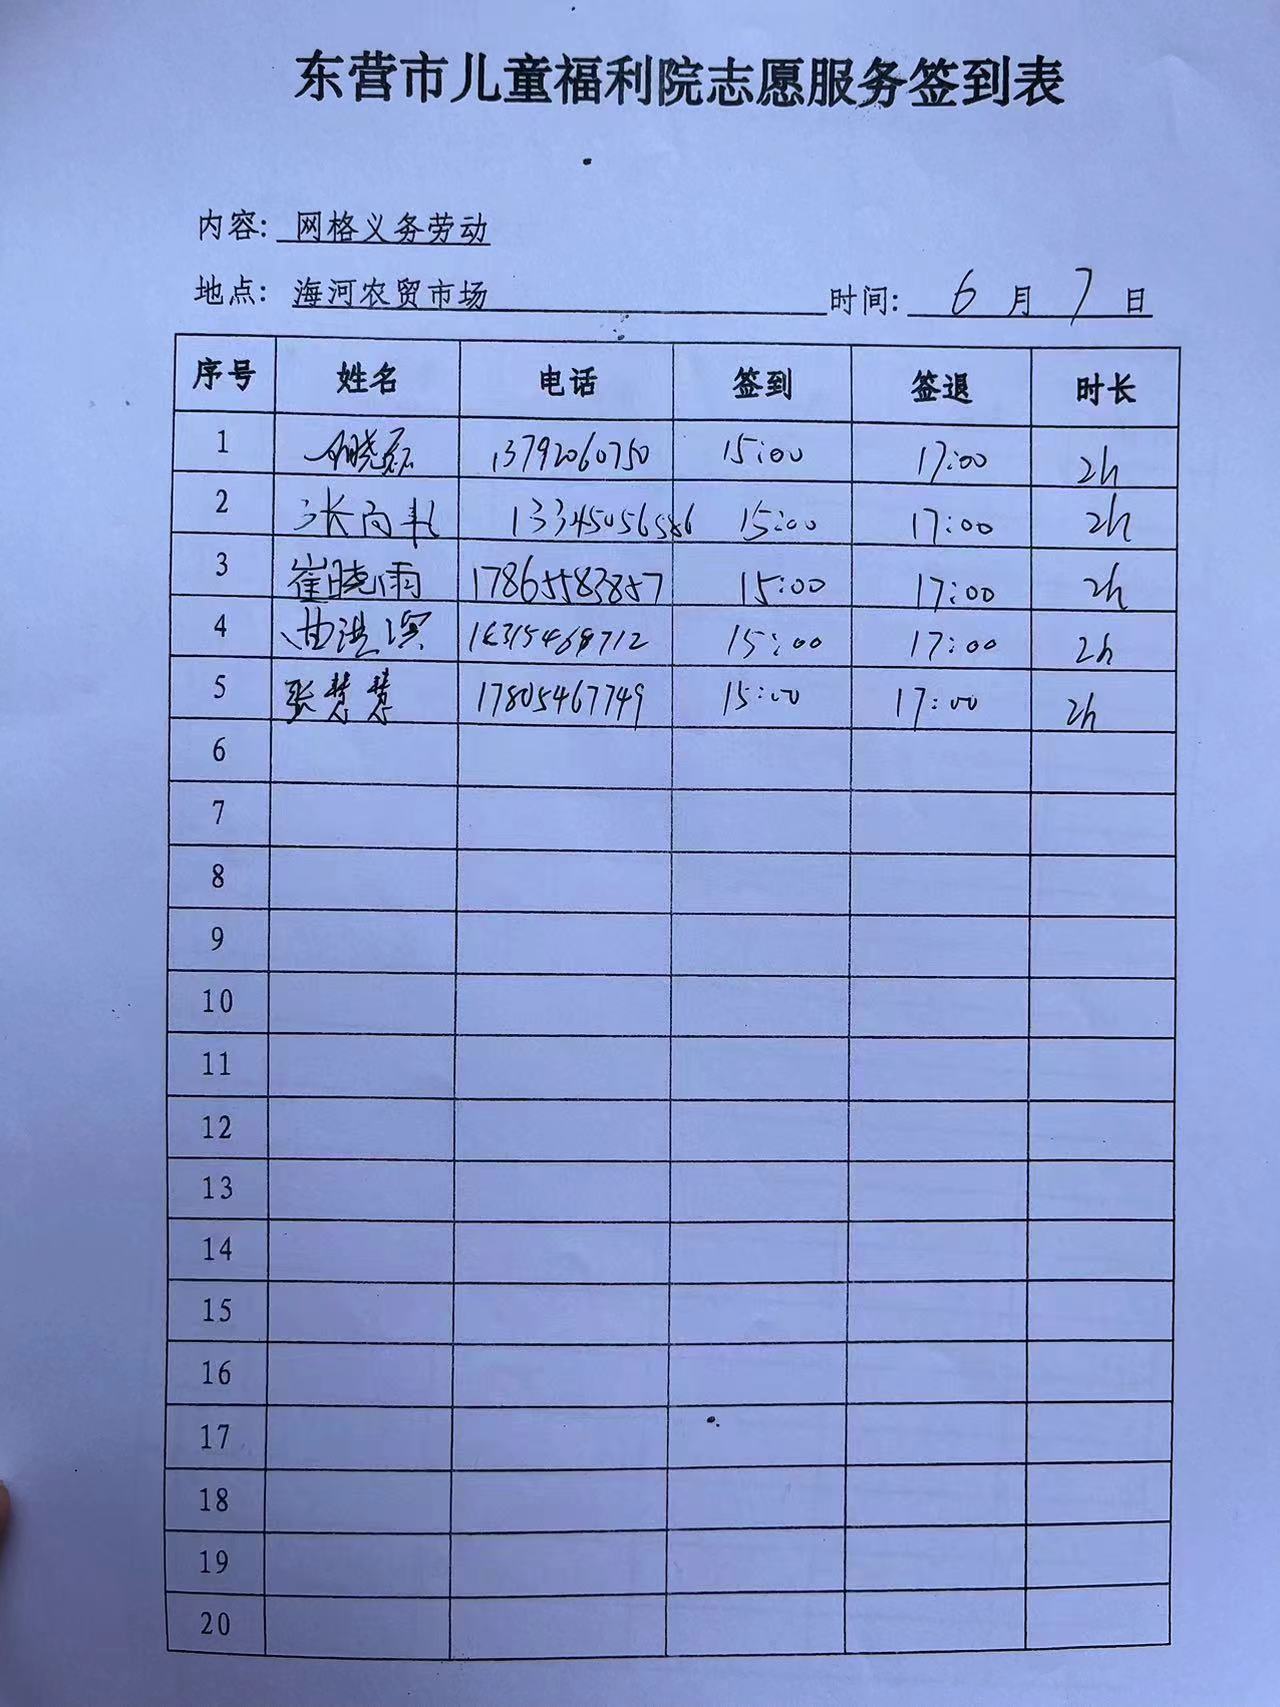 东营市儿童福利院志愿服务签到表
内容: 网格义务劳动
地点: 海河农贸市场 时间: 6 月 7 日
序号 姓名 电话 签到 签退 时长
1 13792060750 15:00 17:00 2h
2 13345056586 15:00 17:00 2h
3 崔晓雨 17865583857 15:00 17:00 2h
4 15:00 17:00 2h
5 张慧慧 17805467749 15:00 17:00 2h
6
7
8
9
10
11
12
13
14
15
16
17
18
19
20